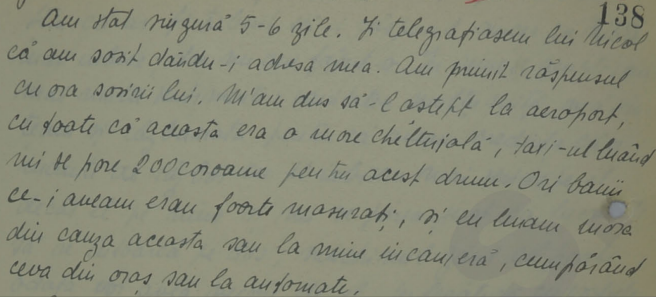 138
Am stat singură 5-6 zile. Îi telegrafiasem lui Nicol
că am sosit dându-i adresa mea. Am primit răspunsul
cu ora sosirii lui. M'am dus să-l aștept la aeroport,
cu toate că aceasta era o mare cheltuială, taxi-ul luând
mi se pare 200 coroane pentru acest drum. Ori banii
ce-i aveam erau foarte masurați, și eu luam masa
din cauza aceasta sau la mine in cameră, cumpărând
ceva din oraș sau la automate.